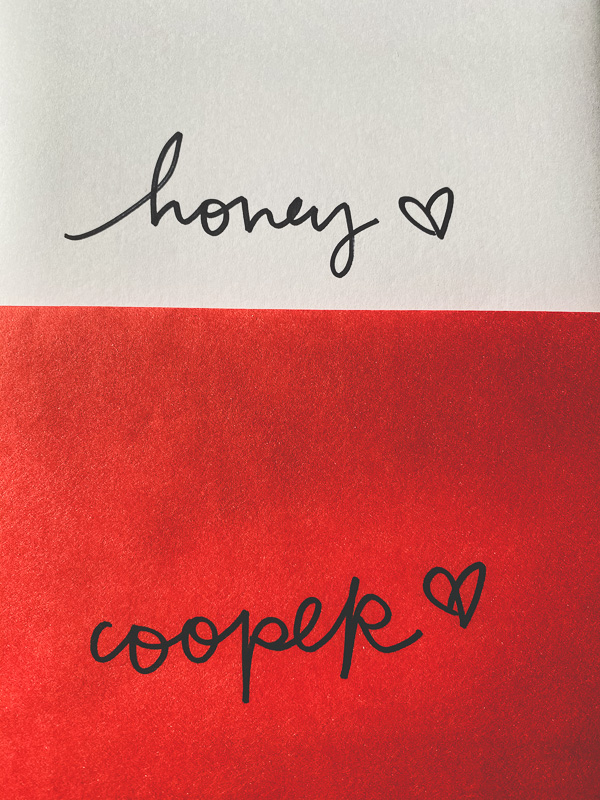 honey ♡
cooper ♡